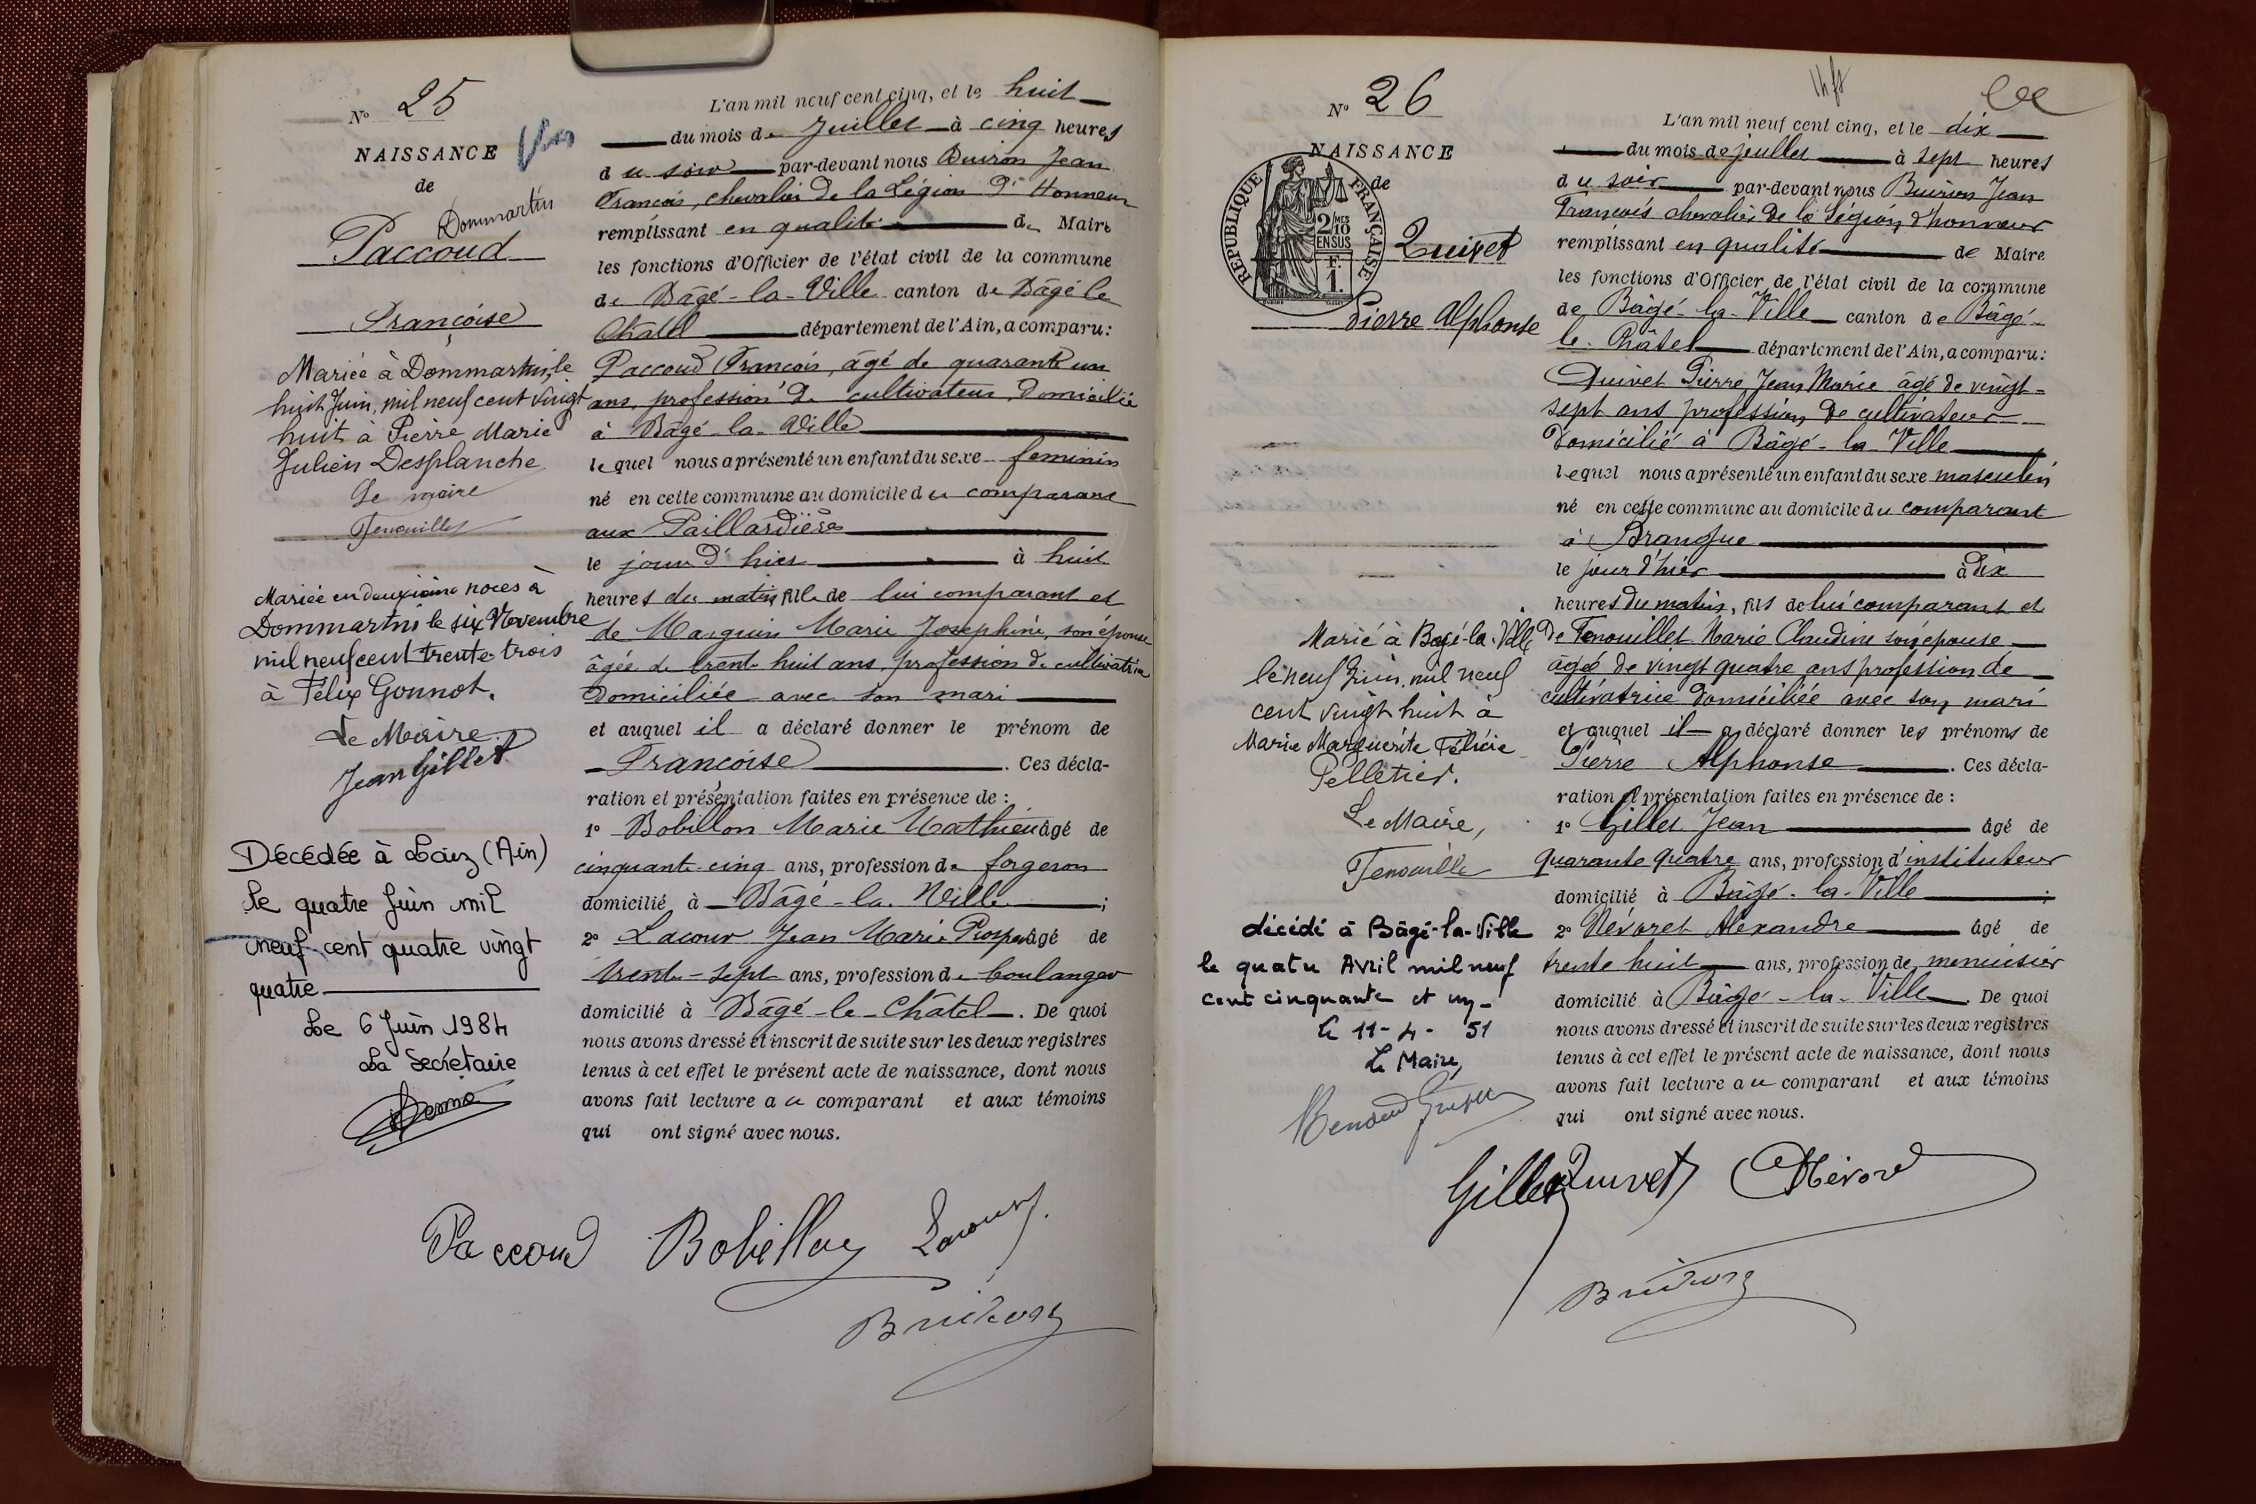 N° 25
NAISSANCE
de
Dommartin
Paccoud
Françoise
Mariée à Dommartin, le
huit Juin, mil neuf cent vingt
huit à Pierre Marie
Julien Desplanche
Le maire
Fenouillet
Mariée en deuxième noces à
Dommartin le six Novembre
mil neuf cent trente trois
à Félix Gonnot.
Le Maire.
Jean Gillet
Décédée à Laiz (Ain)
le quatre Juin mil
neuf cent quatre vingt
quatre
Le 6 Juin 1984
La Secrétaire
L'an mil neuf cent cinq, et le huit
du mois de Juillet à cinq heures
du soir par-devant nous Buiron Jean
François, chevalier de la Légion d'Honneur
remplissant en qualité de Maire
les fonctions d'Officier de l'état civil de la commune
de Bâgé-la-Ville canton de Bâgé le
Châtel département de l'Ain, a comparu:
Paccoud François, âgé de quarante un
ans, profession de cultivateur, domicilié
à Bâgé-la-Ville
lequel nous a présenté un enfant du sexe feminin
né en cette commune au domicile du comparant
aux Paillardières
le jour d'hier à huit
heures du matin, fille de lui comparant et
de Marguin Marie Josephine, son épouse
âgée de trente huit ans, profession de cultivatrice
domiciliée avec son mari
et auquel il a déclaré donner le prénom de
Françoise. Ces décla-
ration et présentation faites en présence de :
1° Bobillon Marie Mathieu âgé de
cinquante cinq ans, profession de forgeron
domicilié à Bâgé-la-Ville ;
2° Lacour Jean Marie Prosper âgé de
trente-sept ans, profession de boulanger
domicilié à Bâgé-le-Châtel. De quoi
nous avons dressé et inscrit de suite sur les deux registres
tenus à cet effet le présent acte de naissance, dont nous
avons fait lecture au comparant et aux témoins
qui ont signé avec nous.
Paccoud Bobillon Lacour
Buiron
N° 26
NAISSANCE
de
RÉPUBLIQUE FRANÇAISE
2 MES
10
EN SUS
F.
1.
Quivet
Pierre Alphonse
Marié à Bagé-la-Ville
le neuf Juin, mil neuf
cent vingt huit à
Marie Marguerite Félicie
Pelletier.
Le Maire,
Fenouillet
décidé à Bâgé-la-Ville
le quatre Avril mil neuf
cent cinquante et un
le 11-4-51
Le Maire,
L'an mil neuf cent cinq, et le dix
du mois de jeullet à sept heures
du soir par-devant nous Buiron Jean
François chevalier de la Légion d'honneur
remplissant en qualité de Maire
les fonctions d'Officier de l'état civil de la commune
de Bâgé-la-Ville canton de Bâgé-
le-Châtel département de l'Ain, a comparu:
Quivet Pierre Jean Marie âgé de vingt-
sept ans profession de cultivateur
domicilié à Bâgé-la-Ville
lequel nous a présenté un enfant du sexe masculin
né en cette commune au domicile du comparant
à Brangue
le jour d'hier à dix
heures du matin, fils de lui comparant et
de Fenouillet Marie Claudine son épouse
âgée de vingt quatre ans profession de
cultivatrice domiciliée avec son mari
et auquel il a déclaré donner les prénoms de
Pierre Alphonse. Ces décla-
ration et présentation faites en présence de :
1° Gillet Jean âgé de
quarante quatre ans, profession d'instituteur
domicilié à Bâgé-la-Ville ;
2° Névoret Alexandre âgé de
trente huit ans, profession de menuisier
domicilié à Bâgé-la-Ville. De quoi
nous avons dressé et inscrit de suite sur les deux registres
tenus à cet effet le présent acte de naissance, dont nous
avons fait lecture au comparant et aux témoins
qui ont signé avec nous.
Gillet Quivet Névoret
Buiron